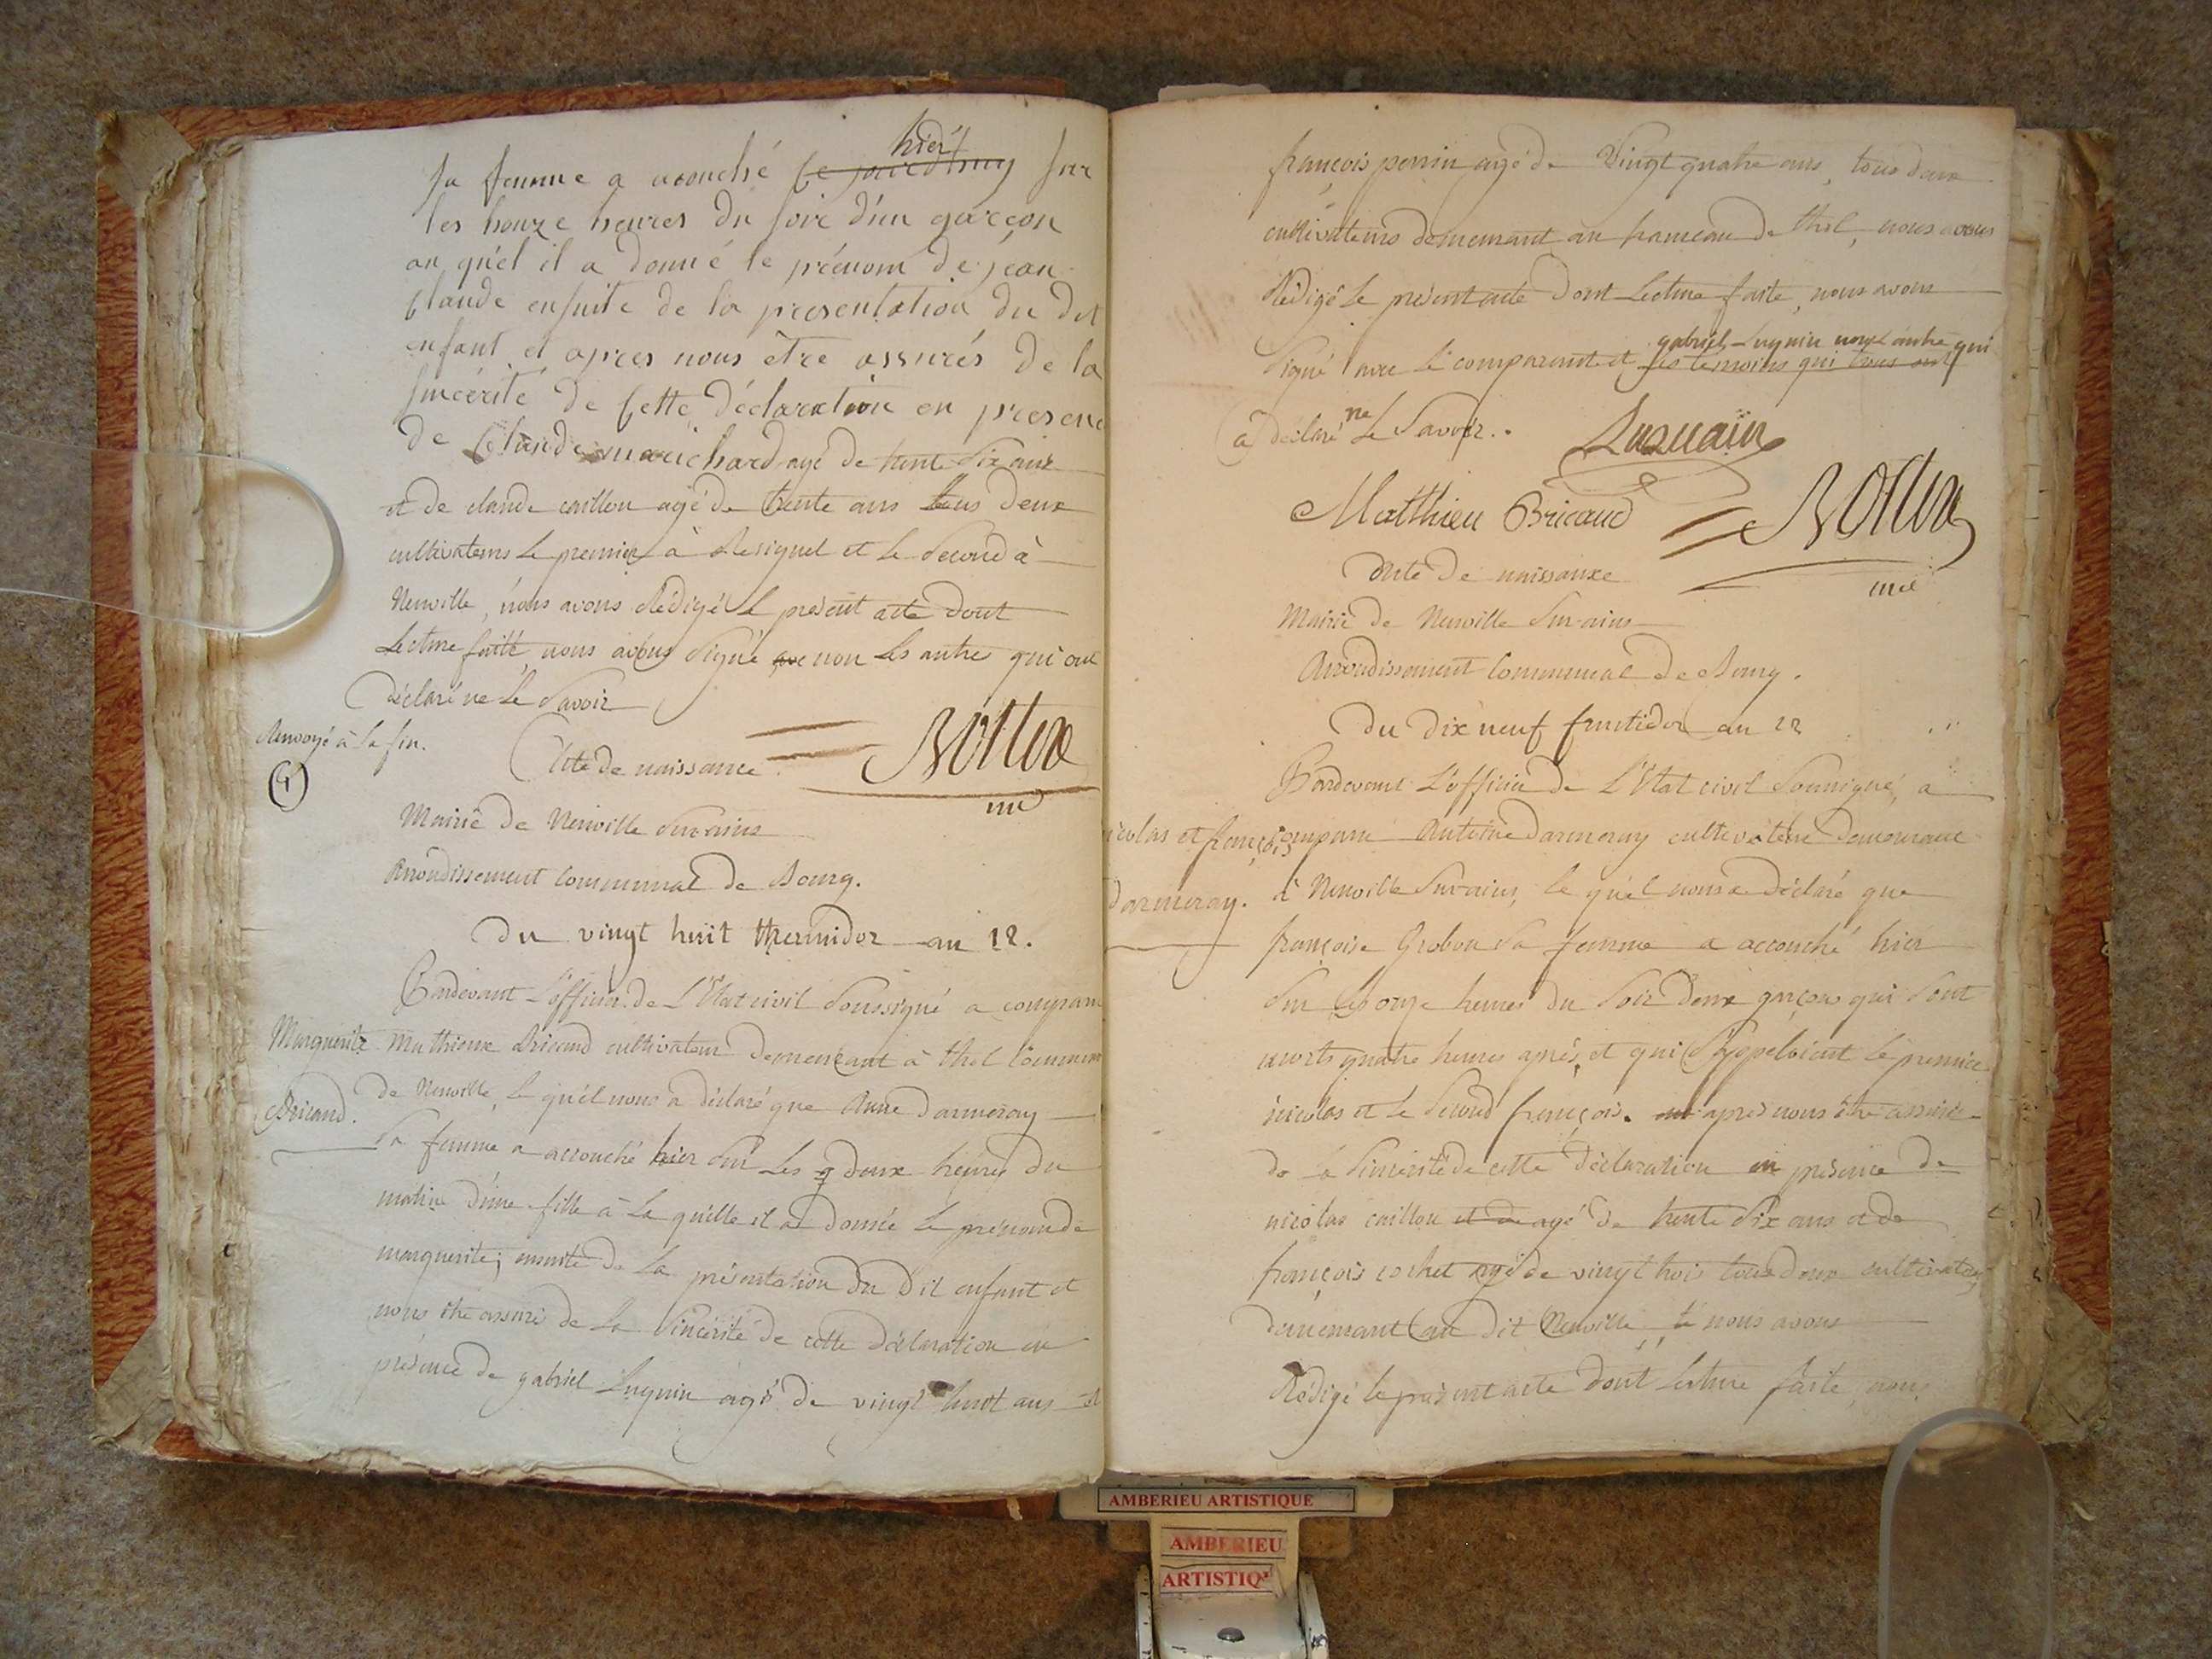 hiér
sa femme a acouché sur
les honze heures du soir d'un garçon
au qu'el il a donné le prénom de jéan
Claude ensuite de la presentation du dit
enfant et aprés nous être assurés de la
sincérité de Cette déclaration en presence
de Claude marichard agé de trente Six ans
et de claude caillou agé de trente ans tous deux
cultivateurs le premier à Resignel et le Second à
Neuville, nous avons Rédigé le présent acte dont
Lecture faitte, nous avons Signé non les autres qui ont
déclaré ne le Savoir
Renvoyé à la fin.
Rollin
Acte de naissance
me
Mairie de Neuville Sur ains
Arrondissement Communal de Bourg.
du vingt huit thermidor an 12.
Pardevant L'officier de L'Etat civil Soussigné a comparu
Marguerite
Mathieux Bricaud cultivateur demeurant à thol commune
Bricaud.
de Neuville, le qu'él nous a déclaré que Anne Darmeray
Sa femme a accouché hier Sur Les deux heures du
matin d'une fille à La quelle il a donnée le prénom de
marguerite; ensuite de La présentation du dit enfant et
nous être assuré de La Sincérité de cette déclaration en
présence de gabriel Luquin agé de vingt huit ans et
françois perrin agé de Vingt quatre ans, tous deux
cultivateurs demeurant au hameau de thol, nous avons
Rédigé le présent acte dont Lecture faite, nous avons
gabriel Luquin non l'autre qui
Signé avec le comparant et ses témoins qui tous ont
a déclaré ne Le Savoir..
Luquain
Matthieu Bricaud
Rollin
me
Acte de naissance
Mairie de Neuville Sur-ains
Arrondissement Communal de Bourg.
du dix neuf fructidor an 12
Pardevant L'officier de L'Etat civil Soussigné, a
nicolas et françois
comparu Antoine Darmeray cultivateur demeurant
Darmeray.
à Neuville Sur ains, le qu'el nous a déclaré que
françoise Grobon Sa femme a accouché hier
Sur les onze heures du Soir deux garçons qui Sont
morts quatre heures aprés, et qui S'appeloient le premier
nicolas et le Second françois. aprés nous être assurés
de la Sincérité de cette déclaration en présence de
nicolas caillou et de agé de trente Six ans et de
françois cochet agé de vingt trois tous deux cultivateurs
demeurant au dit Neuville, nous avons
Rédigé le présent acte dont Lecture faite nous
AMBERIEU ARTISTIQUE
AMBERIEU
ARTISTIQ